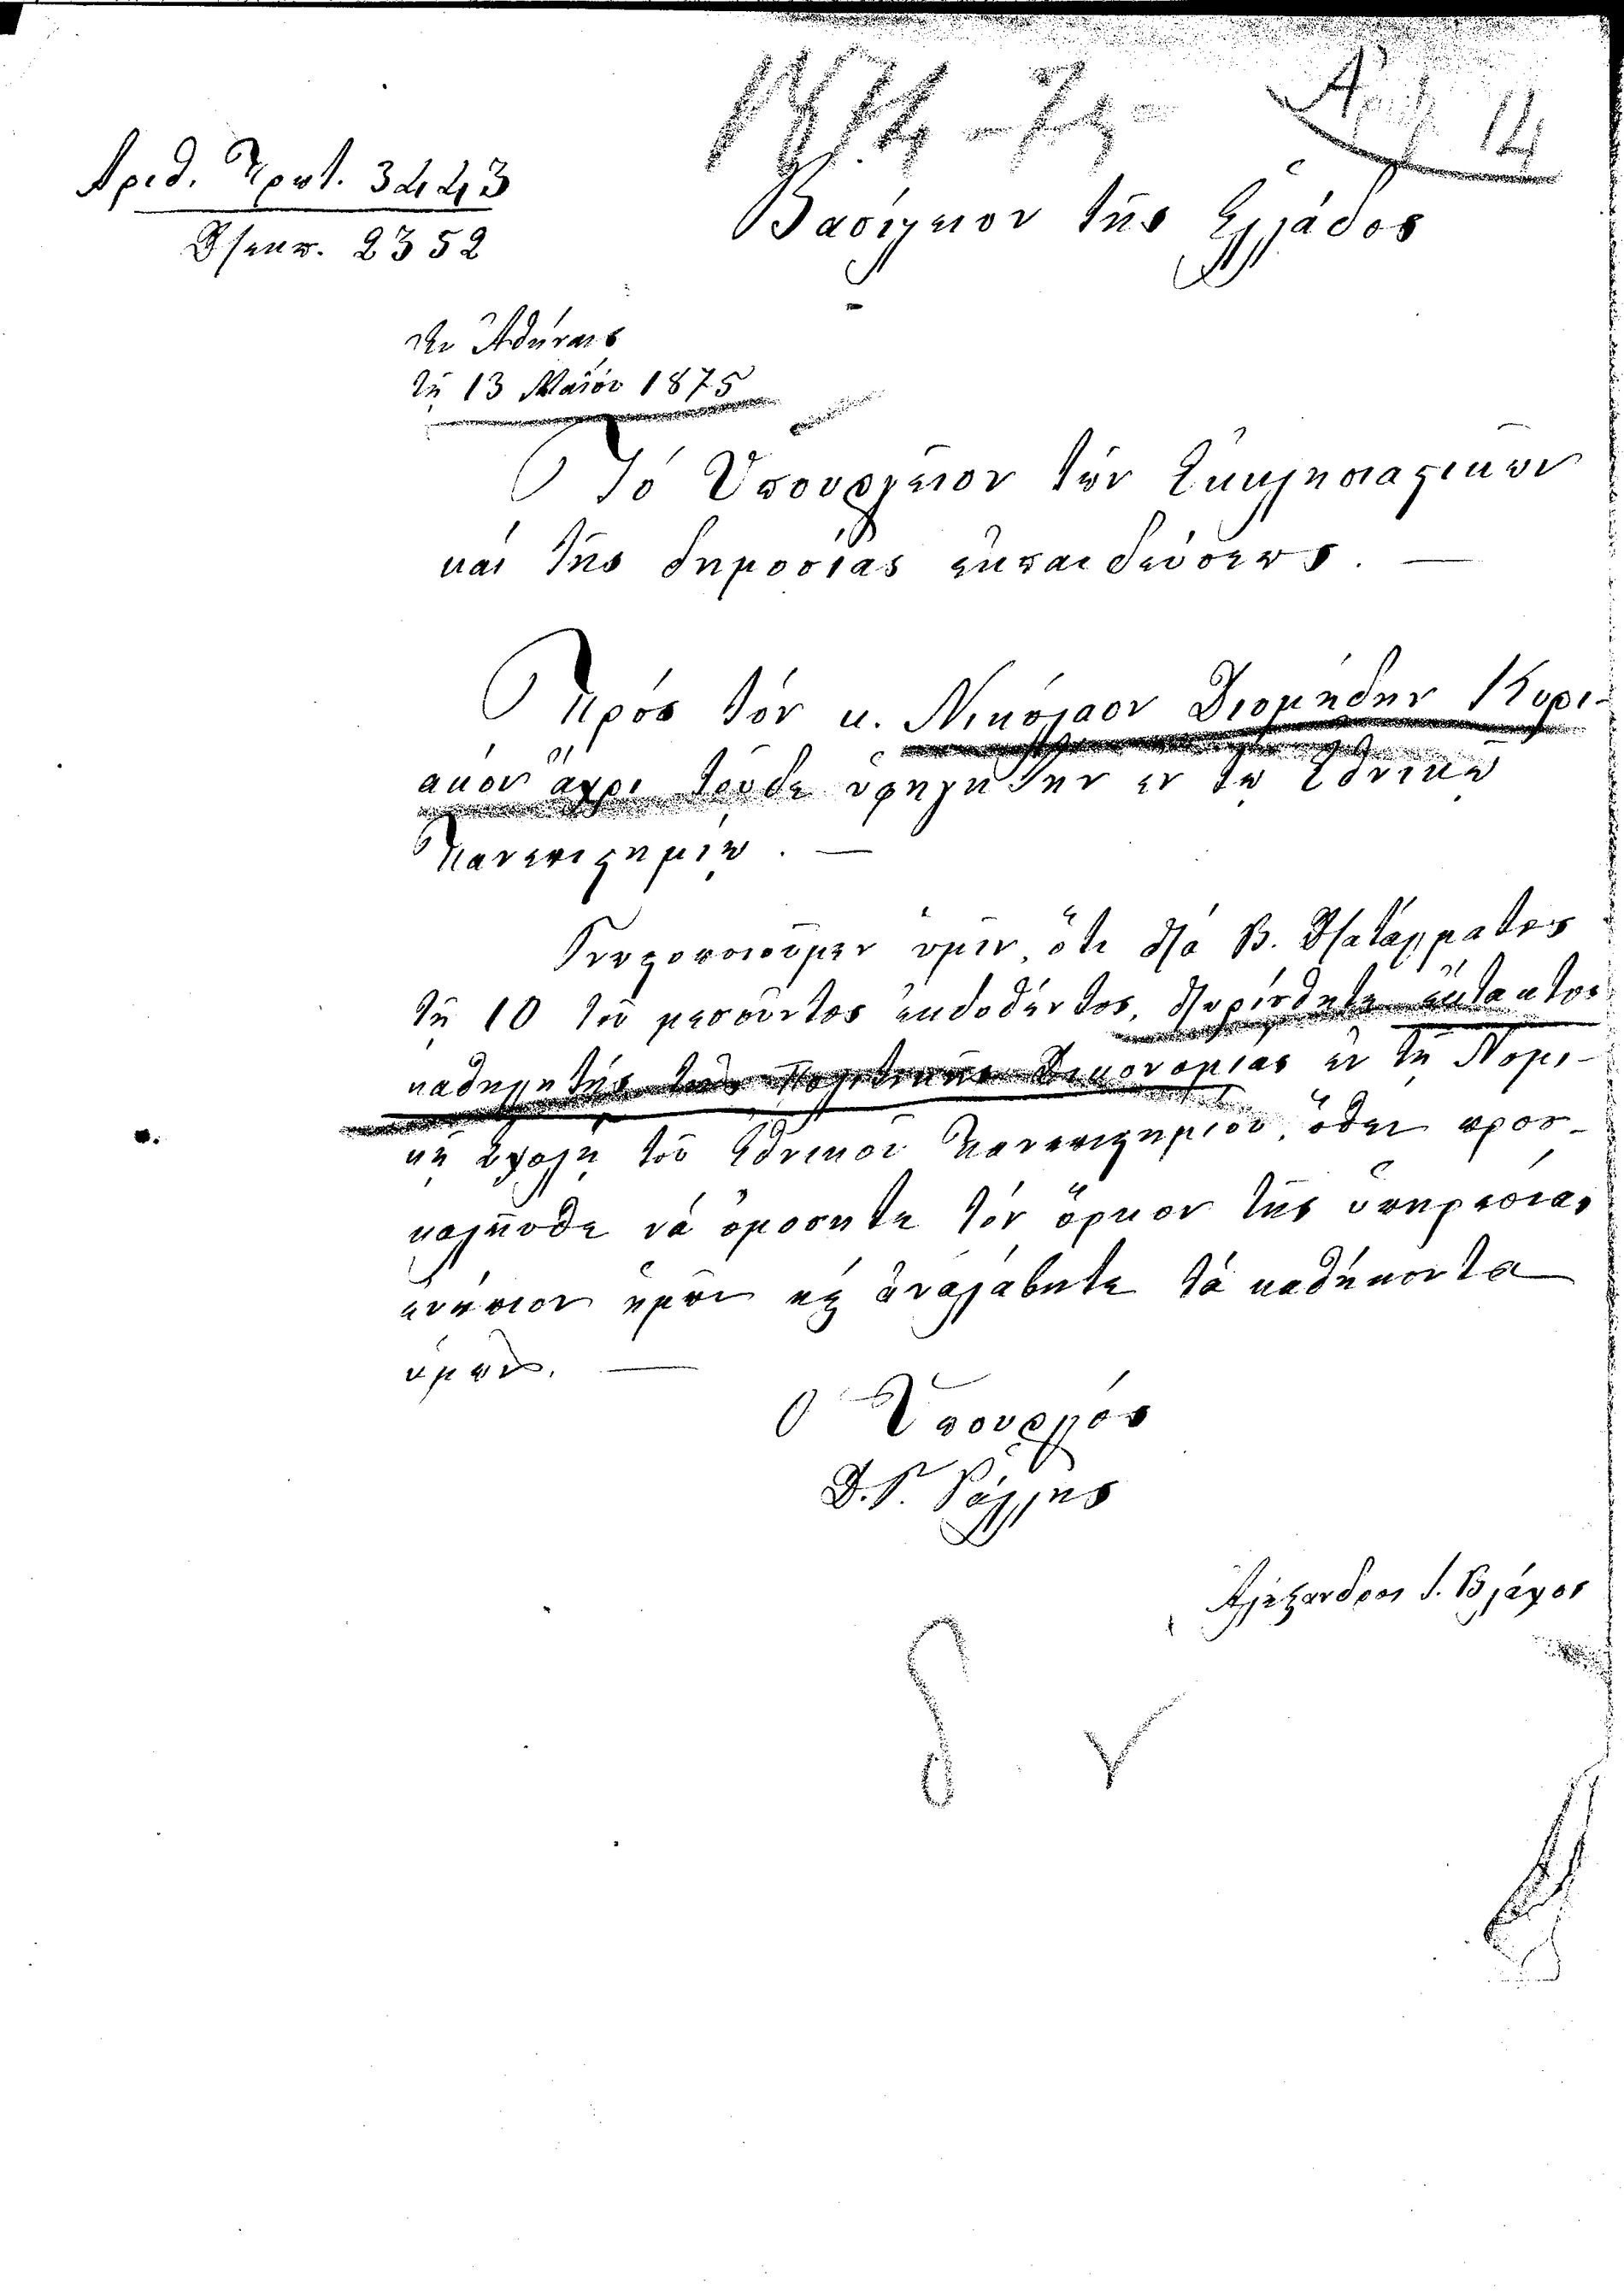 1874-75
Ἀριθ. 14
Ἀριθ. Πρωτ. 3443
Διεκπ. 2352
Βασίλειον τῆς Ἑλλάδος
Ἐν Ἀθήναις
τῇ 13 Μαΐου 1875
Τό Ὑπουργεῖον τῶν Ἐκκλησιαστικῶν
καί τῆς δημοσίας ἐκπαιδεύσεως. —
Πρός τόν κ. Νικόλαον Διομήδην Κυρι-
ακόν ἄχρι τοῦδε ὑφηγητήν ἐν τῷ Ἐθνικῷ
Πανεπιστημίῳ. —
Γνωστοποιοῦμεν ὑμῖν, ὅτι διά Β. Διατάγματος
τῇ 10 τοῦ μεσοῦντος ἐκδοθέντος, διωρίσθητε ἔκτακτος
καθηγητής τῆς Πολιτικῆς Οἰκονομίας ἐν τῇ Νομι-
κῇ Σχολῇ τοῦ Ἐθνικοῦ Πανεπιστημίου, ὅθεν προσ-
καλεῖσθε νά ὀμόσητε τόν ὅρκον τῆς ὑπηρεσίας
ἐνώπιον ἡμῶν κ ἀναλάβητε τά καθήκοντα
ὑμῶν. —
Ὁ Ὑπουργός
Δ. Γ. Ράλλης
Ἀλέξανδρος Βλάχος